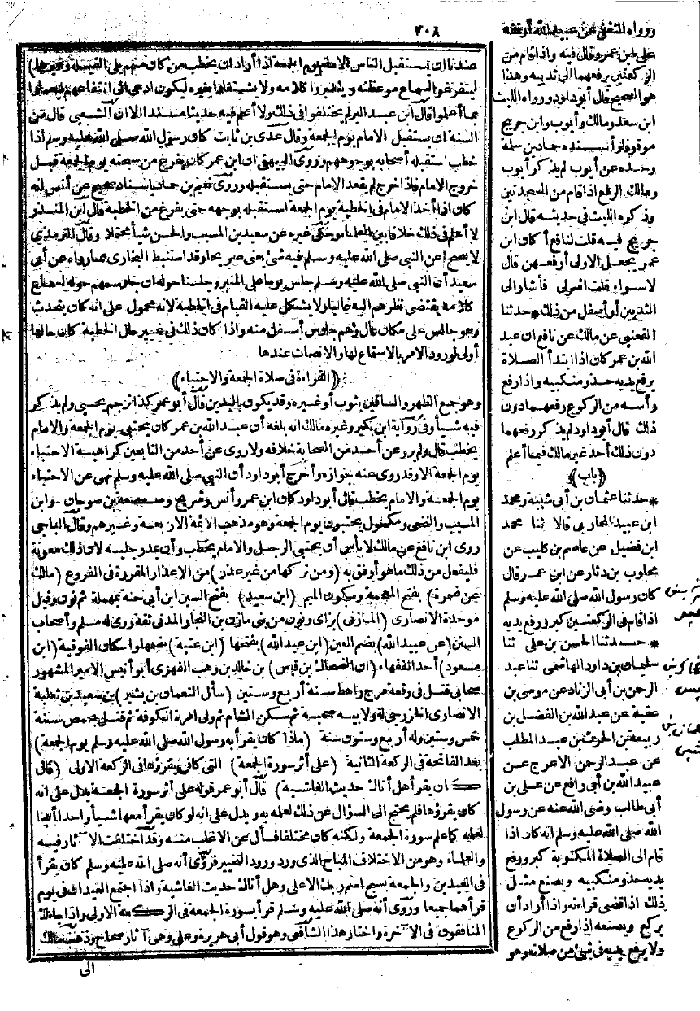 ٢٠٨
عندنا ان يستقبل الناس الامام يوم الجمعة اذا أراد ان يخطب من كان منهم يلي القبلة وغيرها)
ليتفرغوا لسماع موعظته ويتدبروا كلامه ولا يشتغلوا بغيره ليكون أدعى الى انتفاعهم
قال ابن عبد البر لم يختلفوا في ذلك ولا أعلم فيه حديثا مسندا الا ان الشعبي قال من
السنة ان يستقبل الامام يوم الجمعة وقال عدي بن ثابت كان رسول الله صلى الله عليه وسلم اذا
خطب استقبله أصحابه بوجوههم وروى البيهقي ان ابن عمر كان يفرغ من سبحته يوم الجمعة قبل
خروج الامام فاذا خرج لم يقعد الامام حتى يستقبله وروى نعيم بن حماد باسناد صحيح عن أنس انه
كان اذا أخذ الامام في الخطبة يوم الجمعة استقبله بوجهه حتى يفرغ من الخطبة قال ابن المنذر
لا أعلم في ذلك خلافا بين العلماء وحكى غيره عن سعيد بن المسيب والحسن شيأ محتملا وقال الترمذي
لا يصح عن النبي صلى الله عليه وسلم فيه شيء يعني صريحا وقد استنبط البخاري مما رواه عن أبي
سعيد أن النبي صلى الله عليه وسلم جلس يوما على المنبر وجلسنا حوله ان جلوسهم حوله لسماع
كلامه يقتضي نظرهم اليه غالبا ولا يشكل عليه القيام في الخطبة لانه محمول على انه كان يتحدث
وهو جالس على مكان عال وهم جلوس أسفل منه واذا كان ذلك في غير حال الخطبة كان حالها
أولى لورود الامر بالاستماع لها والانصات عندها
﴿القراءة في صلاة الجمعة والاحتباء﴾
وهو جمع الظهر والساقين بثوب أو غيره وقد يكون باليدين قال أبو عمر كذا ترجم يحيى ولم يذكر
فيه شيأ وفي رواية ابن بكير وغيره مالك انه بلغه أن عبد الله بن عمر كان يحتبي يوم الجمعة والامام
يخطب قال ولم يرو عن أحد من الصحابة خلافه ولا روى عن أحد من التابعين كراهية الاحتباء
يوم الجمعة الا وقد روى عنه جوازه وأخرج أبو داود أن النبي صلى الله عليه وسلم نهى عن الاحتباء
يوم الجمعة والامام يخطب قال أبو داود كان ابن عمر وأنس وشريح وصعصعة بن صوحان وابن
المسيب والنخعي ومكحول يحتبون يوم الجمعة وهو مذهب الائمة الاربعة وغيرهم وقال الباجي
روى ابن نافع عن مالك لا بأس أن يحتبي الرجل والامام يخطب وأن يمد رجليه لان ذلك معونة
فليفعل من ذلك ما هو أرفق به (ومن تركها من غير عذر) من الاعذار المقررة في الفروع (مالك
عن ضمرة) بفتح المعجمة وسكون الميم (ابن سعيد) بفتح السين ابن أبي حنة بمهملة ثم نون وقيل
موحدة الانصاري (المازني) بزاي ونون من بني مازن بن النجار المدني ثقة روى له مسلم وأصحاب
السنن (عن عبيد الله) بضم العين (ابن عبد الله) بفتحها (ابن عتبة) بضمها واسكان الفوقية (ابن
مسعود) أحد الفقهاء (ان الضحاك بن قيس) بن خالد بن وهب الفهري أبو أنيس الامير المشهور
صحابي قتل في وقعة مرج راهط سنة أربع وستين (سأل النعمان بن بشير) بن سعد بن ثعلبة
الانصاري الخزرجي له ولابيه صحبة ثم سكن الشام ثم ولي امرة الكوفة ثم قتل بحمص سنة
خمس وستين وله أربع وستون سنة (ماذا كان يقرأ به رسول الله صلى الله عليه وسلم يوم الجمعة)
بعد الفاتحة في الركعة الثانية (على أثر سورة الجمعة) التي كان يقرؤها في الركعة الاولى (قال
كان يقرأ هل أتاك حديث الغاشية) قال أبو عمر قوله على أثر سورة الجمعة يدل على انه
كان يقرؤها فلم يحتج الى السؤال عن ذلك لعلمه به ويدل على انه لو كان يقرأ معها شيأ واحدا أبدا
لعلمه كما علم سورة الجمعة ولكنه كان مختلفا فسأل عن الاغلب منه وقد اختلفت الآثار فيه
والعلماء وهو من الاختلاف المباح الذي ورد ورود التخيير فروى أنه صلى الله عليه وسلم كان يقرأ
في العيدين والجمعة بسبح اسم ربك الاعلى وهل أتاك حديث الغاشية واذا اجتمع العيدان في يوم
قرأ بهما جميعا وروى أنه صلى الله عليه وسلم قرأ بسورة الجمعة في الركعة الاولى واذا جاءك
المنافقون في الآخرة واختار هذا الشافعي وهو قول أبي هريرة وعلي وهي آثار صحاح
الى
ورواه الثقفي عن عبيد الله أوقفه
على ابن عمر وقال فيه واذا قام من
الركعتين يرفعهما الى ثدييه وهذا
هو الصحيح قال أبو داود ورواه الليث
ابن سعد ومالك وأيوب وابن جريج
موقوفا وأسنده حماد بن سلمة
وحده عن أيوب لم يذكر أيوب
ومالك الرفع اذا قام من السجدتين
وذكره الليث في حديثه قال ابن
جريج فيه قلت لنافع أكان ابن
عمر يجعل الاولى أرفعهن قال
لا سواء قلت أشر لي فأشار الى
الثديين أو أسفل من ذلك * حدثنا
القعنبي عن مالك عن نافع ان عبد
الله بن عمر كان اذا ابتدأ الصلاة
يرفع يديه حذو منكبيه واذا رفع
رأسه من الركوع رفعهما دون
ذلك قال أبو داود لم يذكر رفعهما
دون ذلك أحد غير مالك فيما أعلم
﴿باب﴾
* حدثنا عثمان بن أبي شيبة ومحمد
ابن عبيد المحاربي قالا ثنا محمد
ابن فضيل عن عاصم بن كليب عن
محارب بن دثار عن ابن عمر قال
كان رسول الله صلى الله عليه وسلم
اذا قام في الركعتين كبر ورفع يديه
* حدثنا الحسن بن علي ثنا
سليمان بن داود الهاشمي ثنا عبد
الرحمن بن أبي الزناد عن موسى بن
عقبة عن عبد الله بن الفضل بن
ربيعة بن الحرث بن عبد المطلب
عن عبد الرحمن الاعرج عن
عبيد الله بن أبي رافع عن علي بن
أبي طالب رضي الله عنه عن رسول
الله صلى الله عليه وسلم انه كان اذا
قام الى الصلاة المكتوبة كبر ورفع
يديه حذو منكبيه ويصنع مثل
ذلك اذا قضى قراءته واذا أراد أن
يركع ويصنعه اذا رفع من الركوع
ولا يرفع يديه في شيء من صلاته وهو